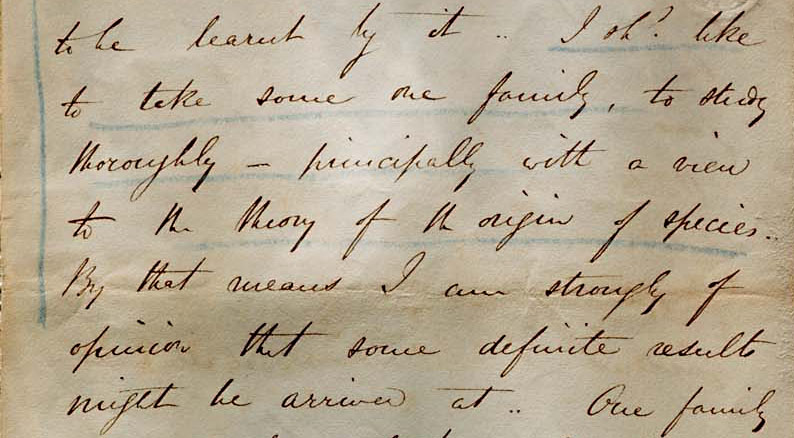 to be learnt by it .. I shd. like
to take some one family, to study
thoroughly – principally with a view
to the theory of the origin of species..
By that means I am strongly of
opinion that some definite results
might be arrived at .. One family